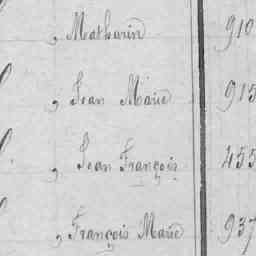 , Matharin 910
, Jean Marie 915
, Jean François 455
, François Marie 937